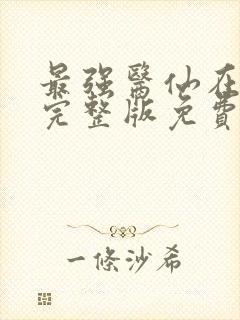 最强醫仙在
完整版免費
一條沙希